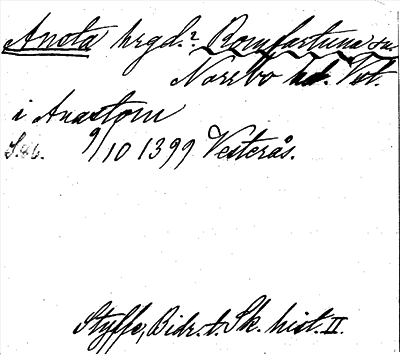 Anota hrgd. Romfartuna sn
Norrbo hd. Vstm.
i Anastom
S. 86. 9/10 1399 Vesterås.
Styffe, Bidr. t. Sk. hist. II.